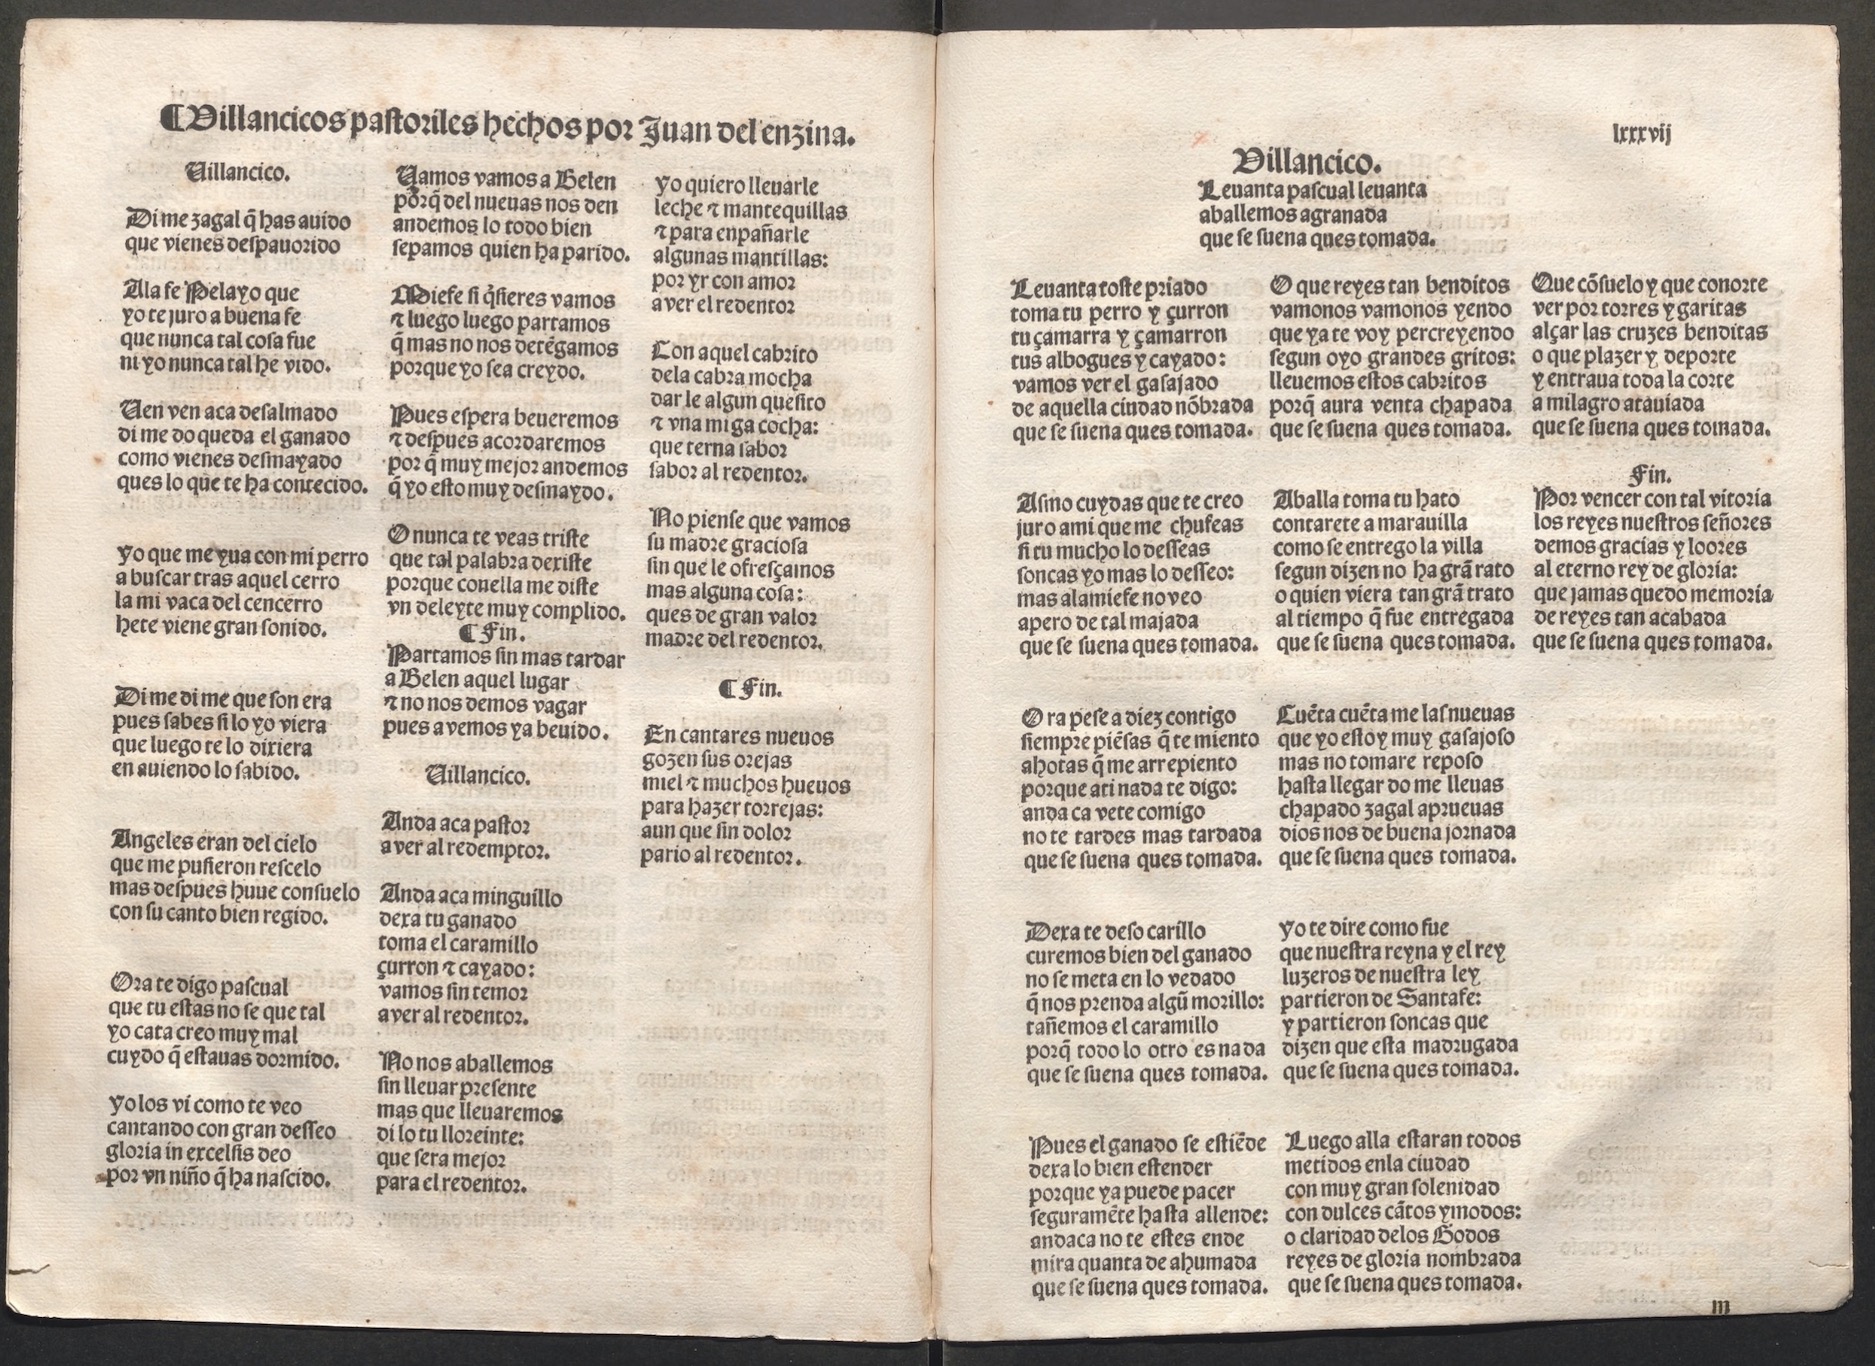 ¶Villancicos pastoriles hechos por Juan del enzina.
Uillancico.
Di me zagal q̃ has auido
que vienes despauorido
Ala fe Pelayo que
yo te juro a buena fe
que nunca tal cosa fue
ni yo nunca tal he vido.
Uen ven aca desalmado
di me do queda el ganado
como vienes desmayado
ques lo que te ha contecido.
Yo que me yua con mi perro
a buscar tras aquel cerro
la mi vaca del cencerro
hete viene gran sonido.
Di me di me que son era
pues sabes si lo yo viera
que luego te lo dixiera
en auiendo lo sabido.
Angeles eran del cielo
que me pusieron rescelo
mas despues huue consuelo
con su canto bien regido.
Ora te digo pascual
que tu estas no se que tal
yo cata creo muy mal
cuydo q̃ estauas dormido.
Yo los vi como te veo
cantando con gran desseo
gloria in excelsis deo
por vn niño q̃ ha nascido.
Uamos vamos a Belen
porq̃ del nueuas nos den
andemos lo todo bien
sepamos quien ha parido.
Miefe si q̃sieres vamos
⁊ luego luego partamos
q̃ mas no nos detẽgamos
porque yo sea creydo.
Pues espera beueremos
⁊ despues acordaremos
por q̃ muy mejor andemos
q̃ yo esto muy desmaydo.
O nunca te veas triste
que tal palabra dexiste
porque conella me diste
vn deleyte muy complido.
¶Fin.
Partamos sin mas tardar
a Belen aquel lugar
⁊ no nos demos vagar
pues avemos ya beuido.
Uillancico.
Anda aca pastor
a ver al redemptor.
Anda aca minguillo
dexa tu ganado
toma el caramillo
çurron ⁊ cayado:
vamos sin temor
a ver al redentor.
No nos aballemos
sin lleuar presente
mas que lleuaremos
di lo tu lloreinte:
que sera mejor
para el redentor.
Yo quiero lleuarle
leche ⁊ mantequillas
⁊ para enpañarle
algunas mantillas:
por yr con amor
a ver el redentor
Con aquel cabrito
dela cabra mocha
dar le algun quesito
⁊ vna miga cocha:
que terna sabor
sabor al redentor.
No piense que vamos
su madre graciosa
sin que le ofresçamos
mas alguna cosa:
ques de gran valor
madre del redentor.
¶Fin.
En cantares nueuos
gozen sus orejas
miel ⁊ muchos hueuos
para hazer torrejas:
aun que sin dolor
pario al redentor.
lxxxvij
Villancico.
Leuanta pascual leuanta
aballemos agranada
que se suena ques tomada.
Leuanta toste priado
toma tu perro y çurron
tu çamarra y çamarron
tus albogues y cayado:
vamos ver el gasajado
de aquella ciudad nõbrada
que se suena ques tomada.
Asmo cuydas que te creo
juro ami que me chufeas
si tu mucho lo desseas
soncas yo mas lo desseo:
mas alamiefe no veo
apero de tal majada
que se suena ques tomada.
Ora pese a diez contigo
siempre piẽsas q̃ te miento
ahotas q̃ me arrepiento
porque ati nada te digo:
anda ca vete comigo
no te tardes mas tardada
que se suena ques tomada.
Dexa te deso carillo
curemos bien del ganado
no se meta en lo vedado
q̃ nos prenda algũ morillo:
tañemos el caramillo
porq̃ todo lo otro es nada
que se suena ques tomada.
Pues el ganado se estiẽde
dexa lo bien estender
porque ya puede pacer
seguramẽte hasta allende:
andaca no te estes ende
mira quanta de ahumada
que se suena ques tomada.
O que reyes tan benditos
vamonos vamonos yendo
que ya te voy percreyendo
segun oyo grandes gritos:
lleuemos estos cabritos
porq̃ aura venta chapada
que se suena ques tomada.
Aballa toma tu hato
contarete a marauilla
como se entrego la villa
segun dizen no ha grã rato
o quien viera tan grã trato
al tiempo q̃ fue entregada
que se suena ques tomada.
Cuẽta cuẽta me las nueuas
que yo estoy muy gasajoso
mas no tomare reposo
hasta llegar do me lleuas
chapado zagal aprueuas
dios nos de buena jornada
que se suena ques tomada.
Yo te dire como fue
que nuestra reyna y el rey
luzeros de nuestra ley
partieron de Santafe:
y partieron soncas que
dizen que esta madrugada
que se suena ques tomada.
Luego alla estaran todos
metidos enla ciudad
con muy gran solenidad
con dulces cãtos ymodos:
o claridad delos Godos
reyes de gloria nombrada
que se suena ques tomada.
Que cõsuelo y que conorte
ver por torres y garitas
alçar las cruzes benditas
o que plazer y deporte
y entraua toda la corte
a milagro atauiada
que se suena ques tomada.
Fin.
Por vencer con tal vitoria
los reyes nuestros señores
demos gracias y loores
al eterno rey de gloria:
que jamas quedo memoria
de reyes tan acabada
que se suena ques tomada.
m